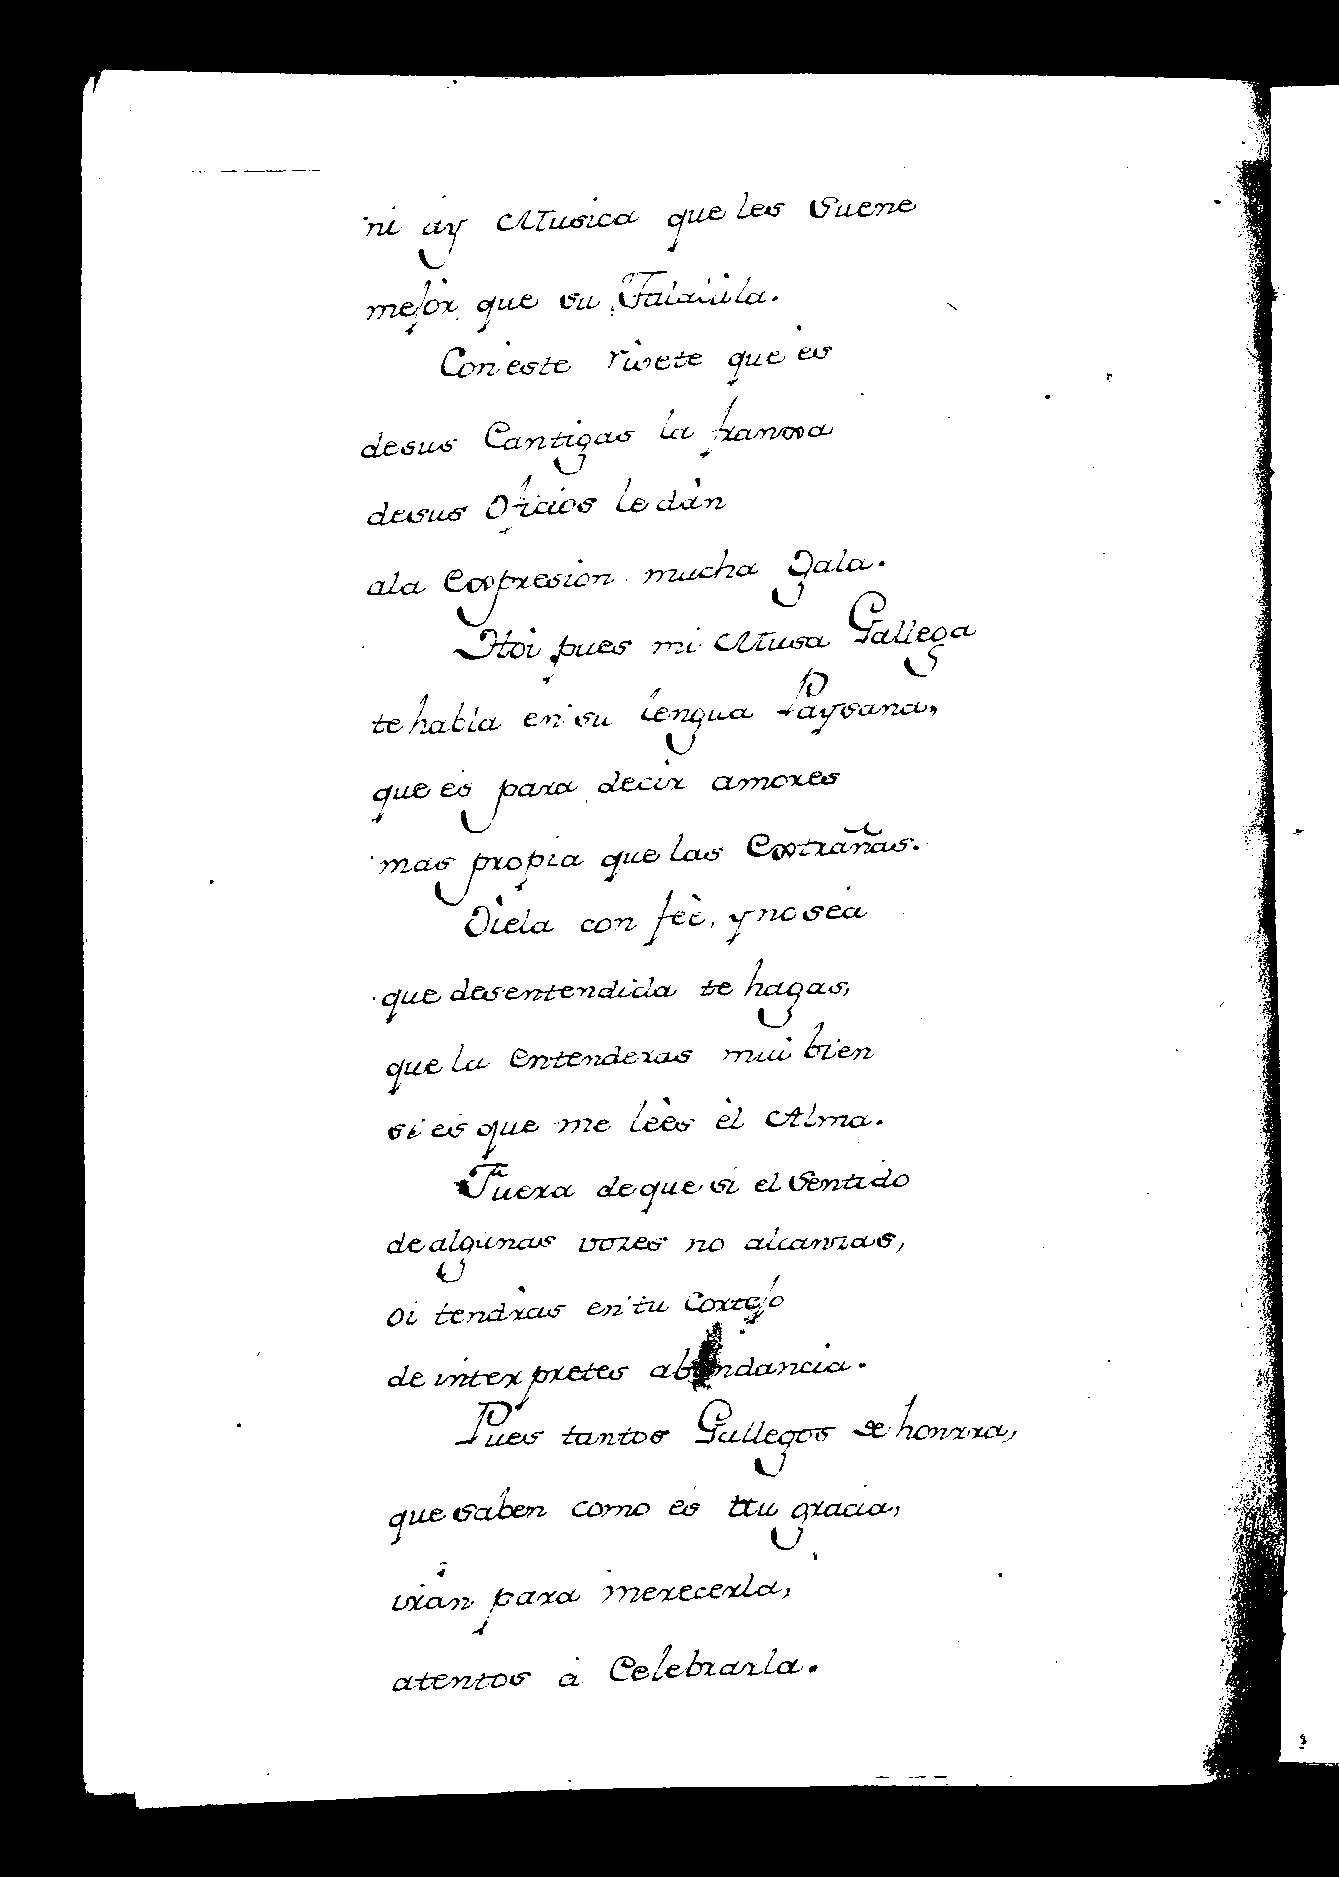 ni ay Musica que les Suene
mejor que su Talalila.
Con este rivete que es
de sus Cantigas la franxa
de sus Oficios le dàn
ala Expresion mucha Gala.
Hoi pues mi Musa Gallega
te habla en su lengua Paysana,
que es para decir amores
mas propia que las Extrañas.
Oiela con feè, y no sea
que desentendida te hagas,
que la Entenderas mui bien
si es que me lèes èl Alma.
Fuera de que si el Sentido
de algunas vozes no alcanzas,
oi tendràs en tu Cortejo
de interpretes abundancia.
Pues tantos Gallegos de honrra,
que saben como es ttu gracia,
iràn para merecerla,
atentos à Celebrarla.